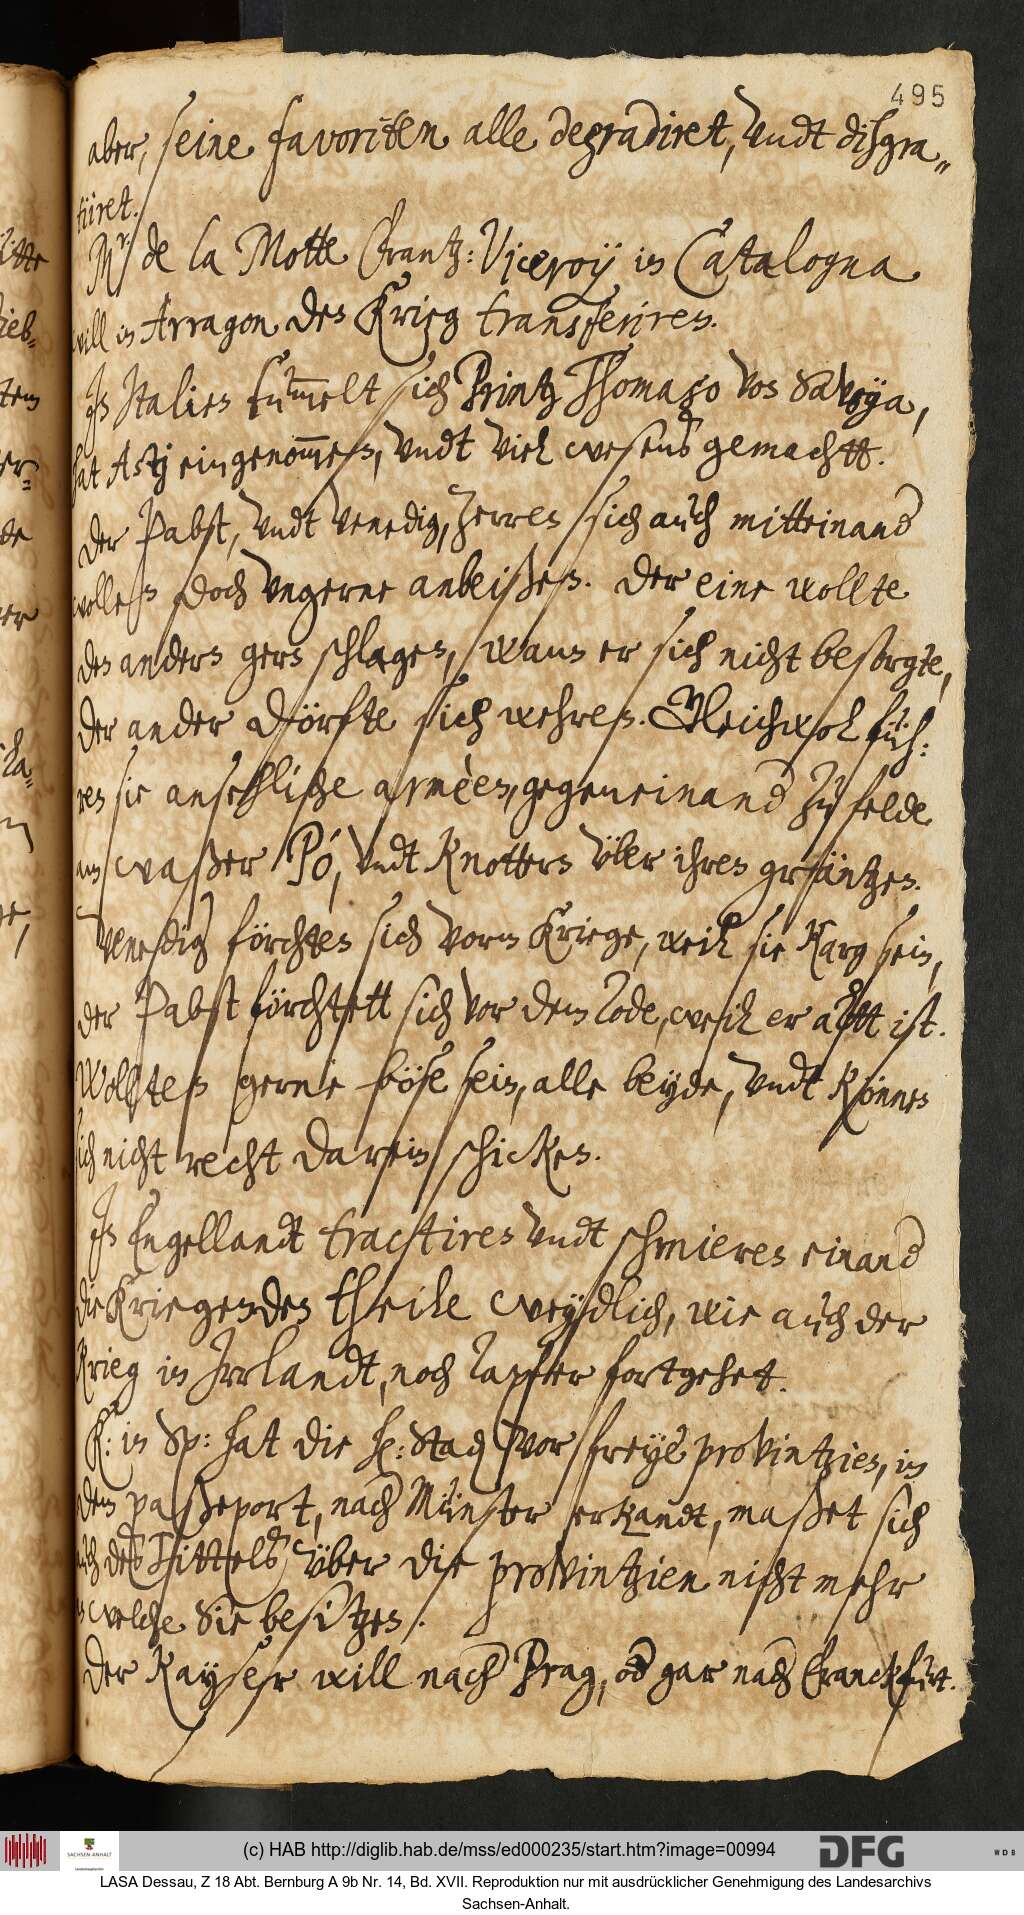 495
aber, seine favoriten alle degradiret, undt disgra-
tiiret.
Mr. de la Motte Frantz: Viceroy in Catalogna
will in Arragon den Krieg transferiren.
In Italien tum̅elt sich Printz Thomaso von Savoya,
hat Asty eingenom̅en, undt viel wesens gemachtt.
Der Pabst, undt Venedig, zerren sich auch mitteinand
wollen doch ungerne anbeißen. Der eine wollte
den andern gern schlagen, wann er sich nicht besorgte,
der ander dörfte sich wehren. Gleichwol füh-
ren sie ansehliche armèen, gegeneinand zu felde
am waßer Pó, undt Knottern über ihren gräntzen.
Venedig förchten sich vorm Kriege, weil sie Karg sein,
der Pabst förchtett sich vor dem Tode, weil er altt ist.
Wollten gerne böse sein, alle beyde, undt Können
sich nicht recht darein schicken.
In Engellandt tractiren undt schmieren einand
die Kriegenden theile weydlich, wie auch der
Krieg in Irrlandt, noch Tapfer fortgehet.
K: in Sp: hat die h: Stad vor freye provintzien, in
dem paßeport, nach Münster erkandt, maßet sich
auch des Tittels über die provintzien nicht mehr
an welche Sie besitzen.
Der Kayser will nach Prag, od gar nach Franckfurt.
(c) HAB http://diglib.hab.de/mss/ed000235/start.htm?image=00994
SACHSEN-ANHALT
DFG
WDB
LASA Dessau, Z 18 Abt. Bernburg A 9b Nr. 14, Bd. XVII. Reproduktion nur mit ausdrücklicher Genehmigung des Landesarchivs
Sachsen-Anhalt.